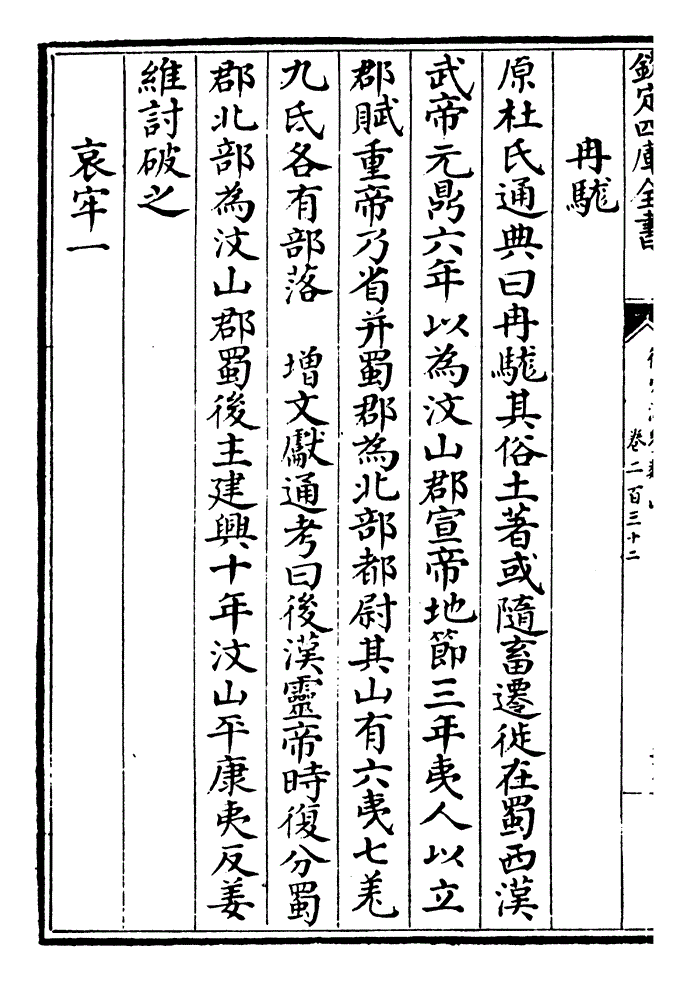 欽定四庫全書
卷二百三十二
冉駹
原杜氏通典曰冉駹其俗土著或隨畜遷徙在蜀西漢
武帝元鼎六年以為汶山郡宣帝地節三年夷人以立
郡賦重帝乃省并蜀郡為北部都尉其山有六夷七羌
九氐各有部落　增文獻通考曰後漢靈帝時復分蜀
郡北部為汶山郡蜀後主建興十年汶山平康夷反姜
維討破之
哀牢一